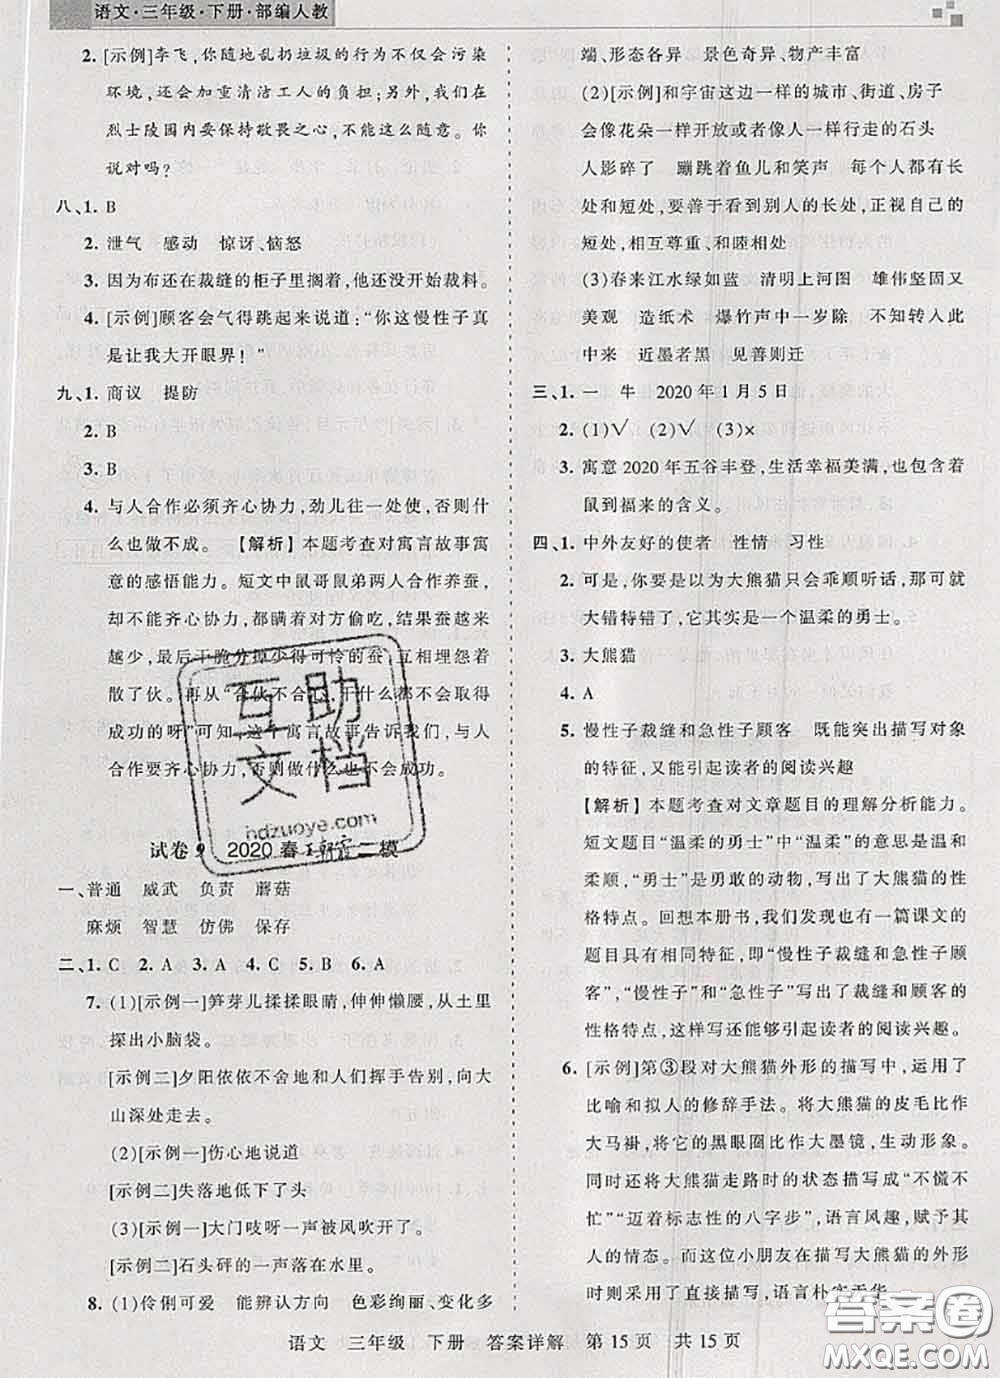 语文·三年级·下册·部编人教
2. [示例]李飞,你随地乱扔垃圾的行为不仅会污染
环境,还会加重清洁工人的负担;另外,我们在
烈士陵园内要保持敬畏之心,不能这么随意。你
说对吗?
八、1. B
2. 泄气 感动 惊讶、恼怒
3. 因为布还在裁缝的柜子里搁着,他还没开始裁料。
4. [示例]顾客会气得跳起来说道:“你这慢性子真
是让我大开眼界!”
九、1. 商议 提防
2. B
3. B
4. 与人合作必须齐心协力,劲儿往一处使,否则什
么也做不成。 【解析】本题考查对寓言故事寓
意的感悟能力。短文中鼠哥鼠弟两人合作养蚕,
却不能齐心协力,都瞒着对方偷吃,结果蚕越来
越少,最后干脆分掉少得可怜的蚕,互相埋怨着
散了伙。再从“合伙不合心,干什么都不会取得
成功的呀”可知,这个寓言故事告诉人们,与人
合作要齐心协力,否则做什么也不会成功。
互助
文档
hdzuoye.com
试卷9 2020春王朝霞二模
一、普通 威武 负责 蘑菇
麻烦 智慧 仿佛 保存
二、1. C 2. A 3. A 4. C 5. B 6. A
7. (1)[示例一]笋芽儿揉揉眼睛,伸伸懒腰,从土里
探出小脑袋。
[示例二]夕阳依依不舍地和人们挥手告别,向大
山深处走去。
(2)[示例一]伤心地说道
[示例二]失落地低下了头
(3)[示例一]大门吱呀一声被风吹开了。
[示例二]石头砰的一声落在水里。
8. (1)伶俐可爱 能辨认方向 色彩绚丽、变化多
端、形态各异 景色奇异、物产丰富
(2)[示例]和宇宙这边一样的城市、街道、房子
会像花朵一样开放或者像人一样行走的石头
人影碎了 蹦跳着鱼儿和笑声 每个人都有长
处和短处,要看到别人的长处,正视自己的
短处,相互尊重、和睦相处
(3)春来江水绿如蓝 清明上河图 雄伟坚固又
美观 造纸术 爆竹声中一岁除 不知转入此
中来 近墨者黑 见善则迁
三、1. 一 牛 2020年1月5日
2. (1)√ (2)√ (3)×
3. 寓意2020年五谷丰登,生活幸福美满,也包含着
鼠到福来的含义。
四、1. 中外友好的使者 性情 习性
2. 可是,你要是以为大熊猫只会乖顺听话,那可就
大错特错了,它其实是一个温柔的勇士。
3. 大熊猫
4. A
5. 慢性子裁缝和急性子顾客 既能突出描写对象
的特征,又能引起读者的阅读兴趣
【解析】本题考查对文章题目的理解分析能力。
短文题目“温柔的勇士”中“温柔”是指性情
柔顺,“勇士”是勇敢的动物,写出了大熊猫的性
格特点。回想本册书,我们也有一篇课文的
题目具有相同特征,即“慢性子裁缝和急性子顾
客”,“慢性子”和“急性子”写出了裁缝和顾客的
性格特点,这样写还能够引起读者的阅读兴趣。
6. [示例]第③段对大熊猫外形的描写中,运用了
比喻和拟人的修辞手法。将大熊猫的皮毛比作
大马褂,将它的黑眼圈比作大墨镜,生动形象。
同时还将大熊猫走路时的状态描写成“不慌不
忙”“迈着标志性的八字步”,语言风趣,赋予其
人的情态。而这位小朋友在描写大熊猫的外形
时则直接写出了其特征,语言朴实无华。
语文 三年级 下册 答案详解 第15页 共15页
答案卷
MXQE.COM